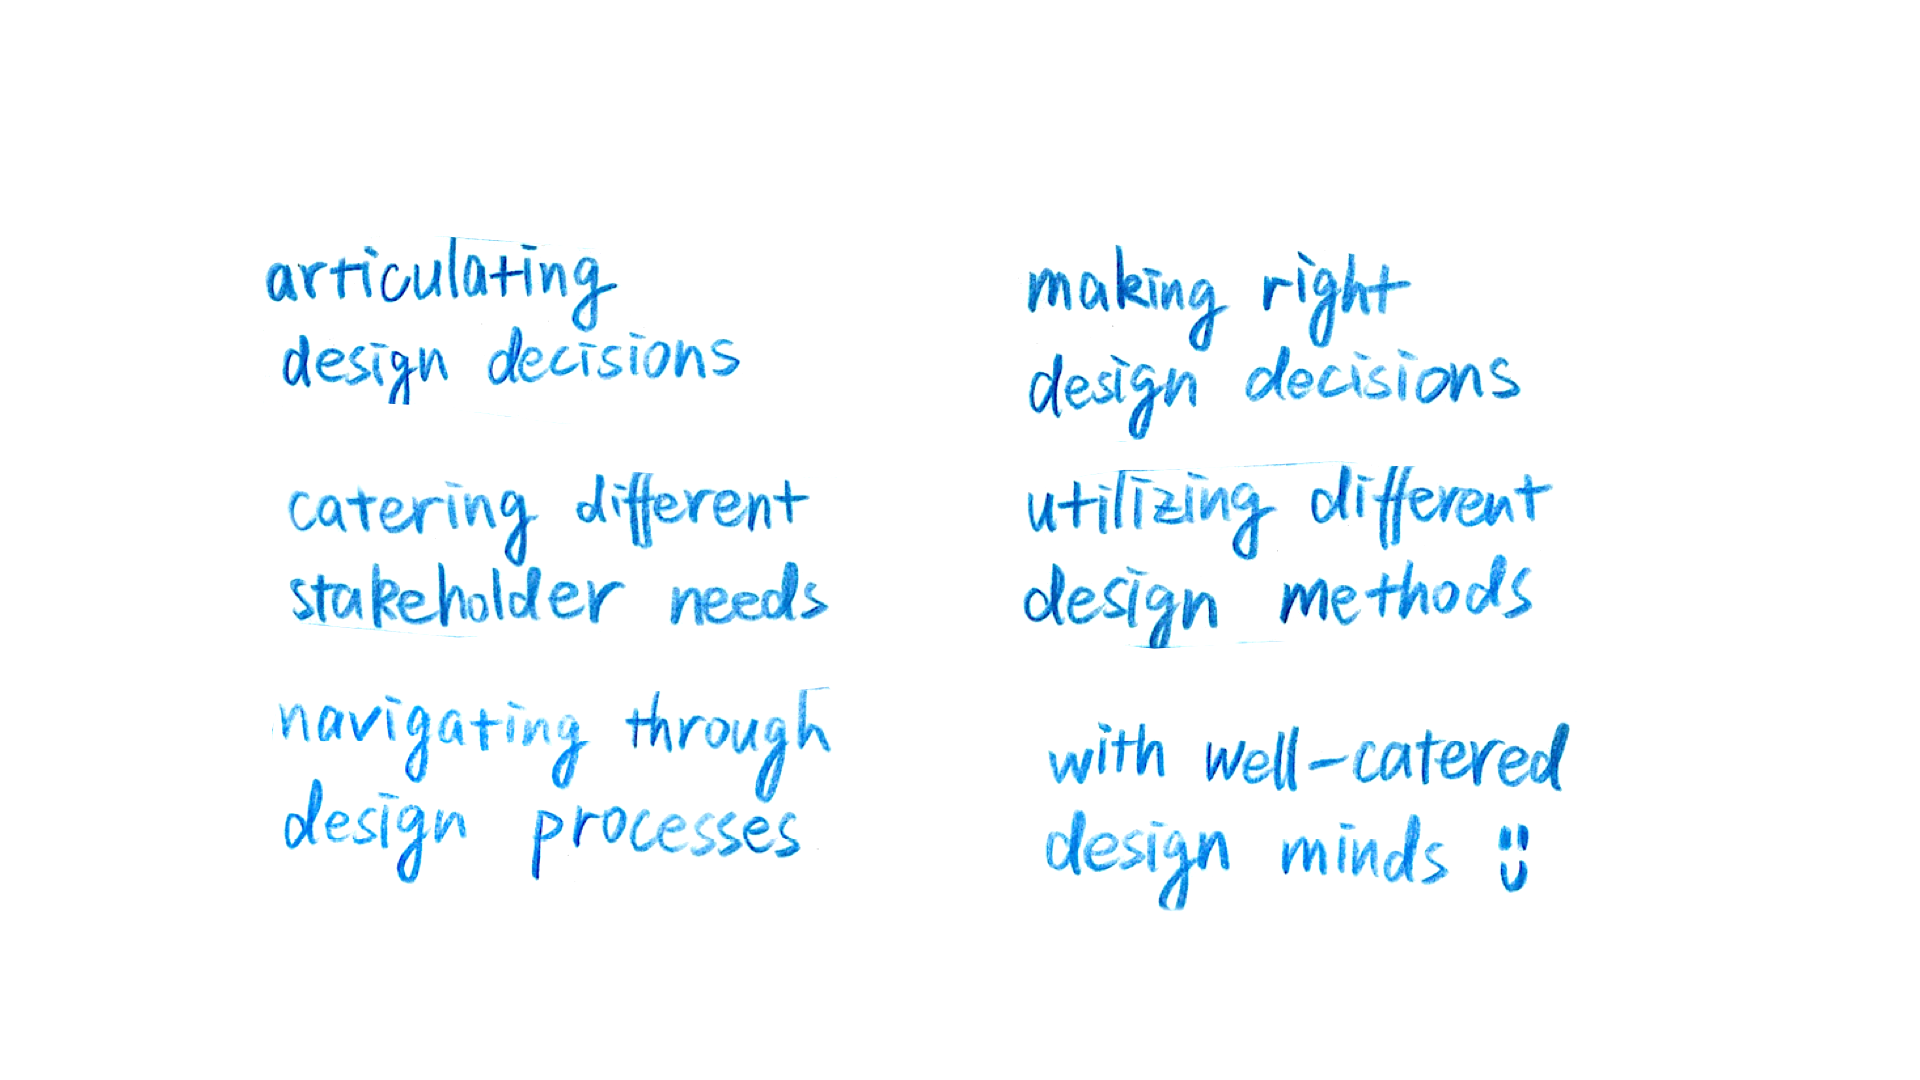 articulating
design decisions
catering different
stakeholder needs
navigating through
design processes
making right
design decisions
utilizing different
design methods
with well-catered
design minds